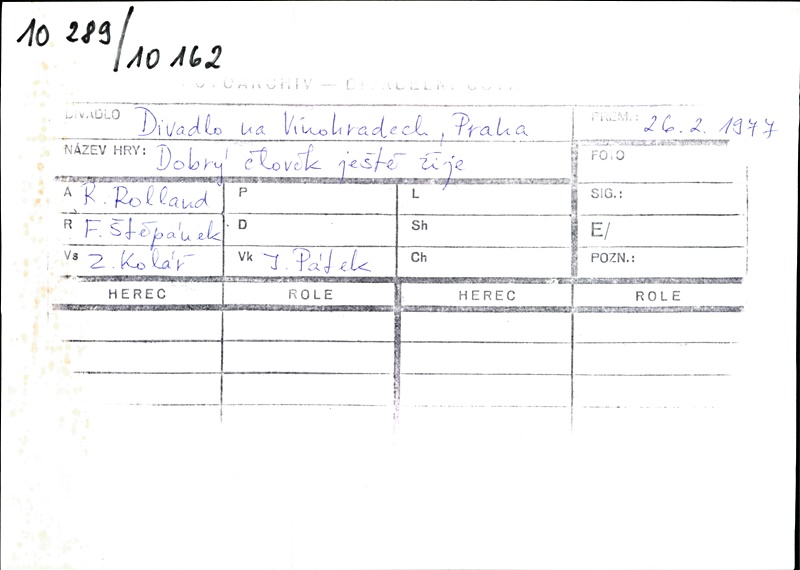 10 289/
10 162
DIVADLO Divadlo na Vinohradech, Praha PREM.: 26. 2. 1977
NÁZEV HRY: Dobrý člověk ještě žije FOTO
A R. Rolland P L SIG.:
R F. Štěpánek D Sh E/
Vs Z. Kolář Vk J. Pátek Ch POZN.:
HEREC ROLE HEREC ROLE